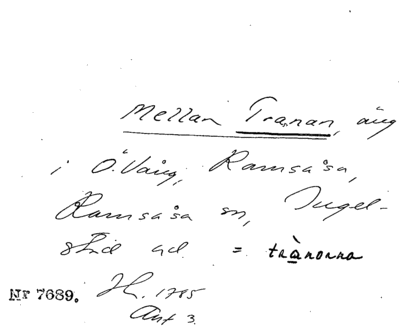 Mellan Tranan, äng
i Ö. Vång, Ramsåsa,
Ramsåsa sn, Ingel-
stad hd. = trànorna
Nr 7689. H. 1785
Akt 3.